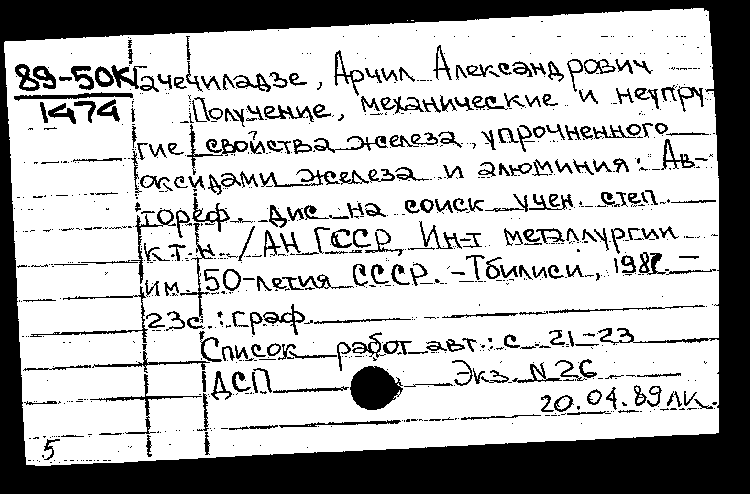 89-50К Гачечиладзе, Арчил Александрович
1474 Получение, механические и неупру-
гие свойства железа, упрочненного
оксидами железа и алюминия: Ав-
тореф. дис. на соиск. учен. степ.
к.т.н. /АН ГССР, Ин-т металлургии
им. 50-летия СССР. -Тбилиси, 1987. -
23с.: граф.
Список работ авт.: с. 21-23
ДСП Экз. N 26
20.04.89 лк.
5